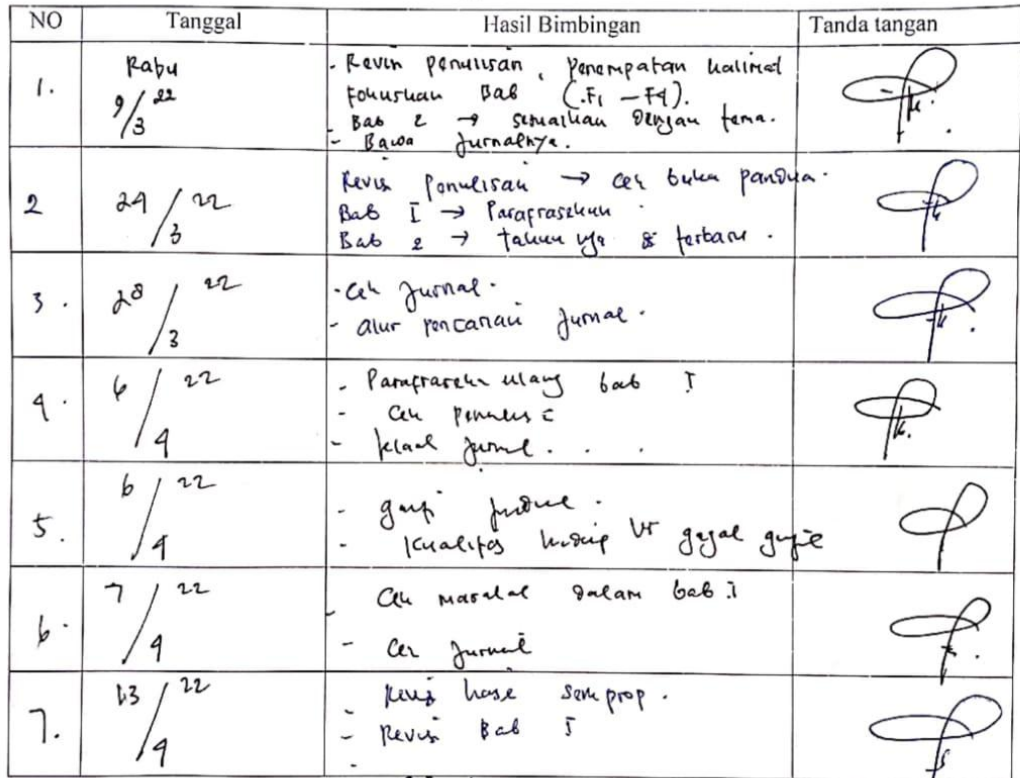 NO Tanggal Hasil Bimbingan Tanda tangan
1. Rabu 9/3 22
- Revisi penulisan, penempatan kalimat
fokuskan Bab (F1 - F4).
- Bab 2 → sesuaikan dengan tema.
- Bawa Jurnalnya.
2 24/3 22
Revisi Penulisan → cek buku panduan.
Bab I → Parafrasekan
Bab 2 → tahun terbaru.
3. 28/3 22
- Cek Jurnal.
- alur pencarian Jurnal.
4. 6/4 22
- Parafrasekan ulang bab I
- Cek penulisan
- Jurnal
5. 6/4 22
- ganti judul.
- Kualitas hidup gagal ginjal
6. 7/4 22
- Cek masalah dalam bab I
- Cek Jurnal
7. 13/4 22
- Revisi hasil semprop.
- Revisi Bab I